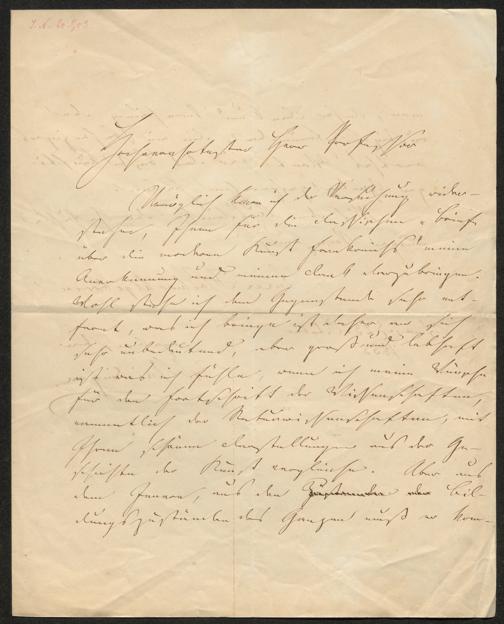 Hochverehrtester Herr Professor
Unmöglich kann ich der Versuchung wider-
stehen, Ihnen für die classischen „Briefe
über die moderne Kunst Frankreichs" meine
Anerkennung und meinen Dank darzubringen.
Wohl stehe ich dem Gegenstande sehr ent-
fernt, was ich bringe ist daher, an sich
sehr unbedeutend, aber groß und lebhaft
ist was ich fühle, wenn ich meine Wünsche
für den Fortschritt der Wissenschaften,
namentlich der Naturwissenschaften, mit
Ihren schönen Darstellungen aus der Ge-
schichte der Kunst vergleiche. Aber aus
dem Innern, aus den Zuständen der Bil-
dungszustände des Ganzen muß er kom-